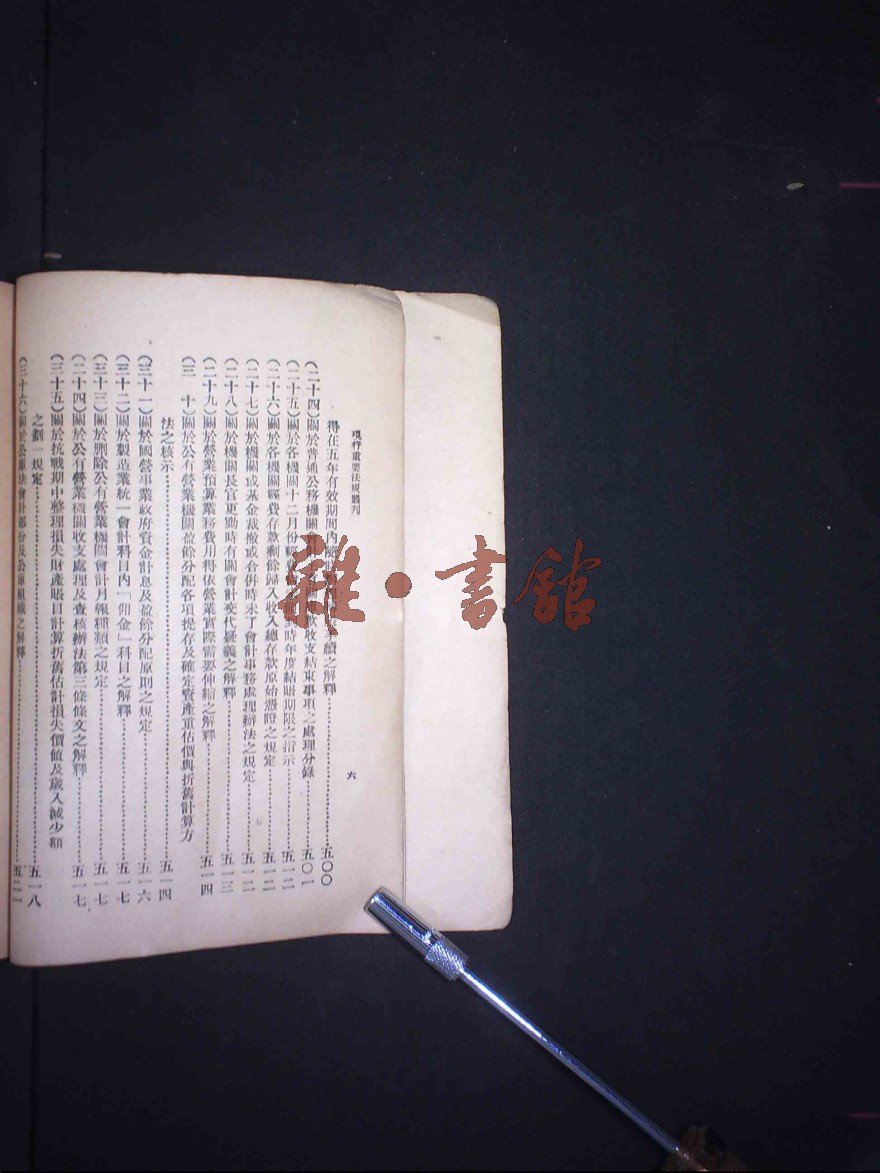 現行重要法規叢刊
六
得在五年有效期間內 之解釋…………五〇〇
(二十四)關於普通公務機關 收支結束事項之處理分錄…………五〇一
(二十五)關於各機關十二月份 時年度結賬期限之指示…………五一二
(二十六)關於各機關經費存款剩餘歸入收入總存款原始憑證之規定…………五一二
(二十七)關於機關或基金裁撤或合併時未了會計事務處理辦法之規定…………五一二
(二十八)關於機關長官更動時有關會計交代疑義之解釋…………五一三
(二十九)關於營業預算業務費用得依營業實際需要伸縮之解釋…………五一四
(三 十)關於公有營業機關盈餘分配各項提存及確定資產重估價與折舊計算方
法之核示…………五一四
(三十一)關於國營事業政府資金計息及盈餘分配原則之規定…………五一六
(三十二)關於製造業統一會計科目內「佣金」科目之解釋…………五一七
(三十三)關於刪除公有營業機關會計月報種類之規定…………五一七
(三十四)關於公有營業機關收支處理及查核辦法第三條條文之解釋…………五一七
(三十五)關於抗戰期中整理損失財產賬目計算折舊估計損失價值及歲入減少額
之劃一規定…………五一八
(三十六)關於公庫法會計部份及公庫組織之解釋…………五二一
雜·書館